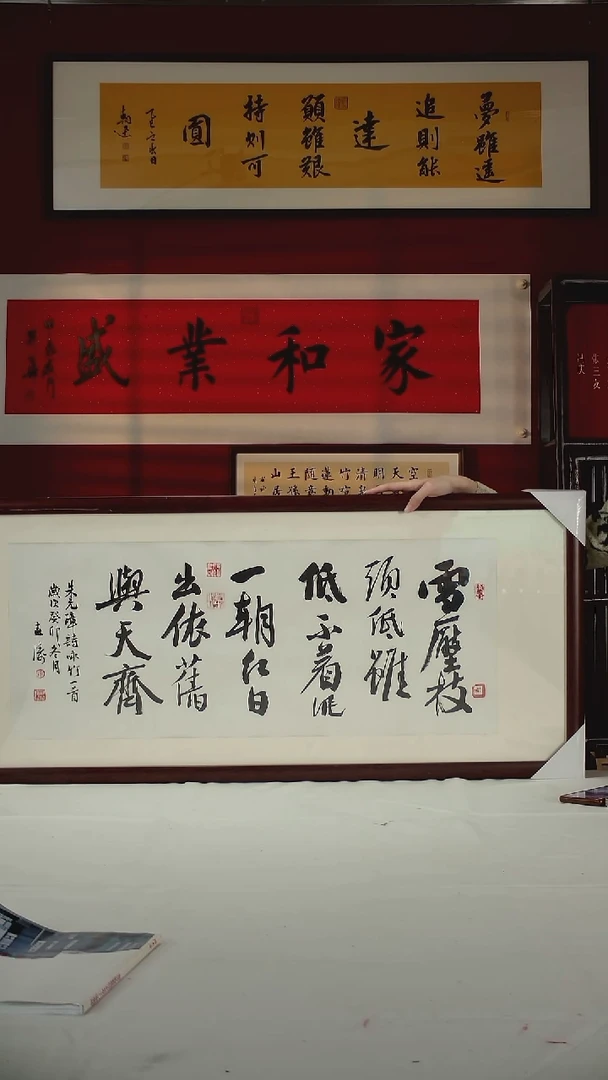 夢雖遙
追則能
達
願雖艱
持則可
圓
家和業盛
雪壓枝
頭低雖
低不着泥
一朝紅日
出依舊
與天齊
朱元璋詩咏竹一首
歲次癸卯冬月